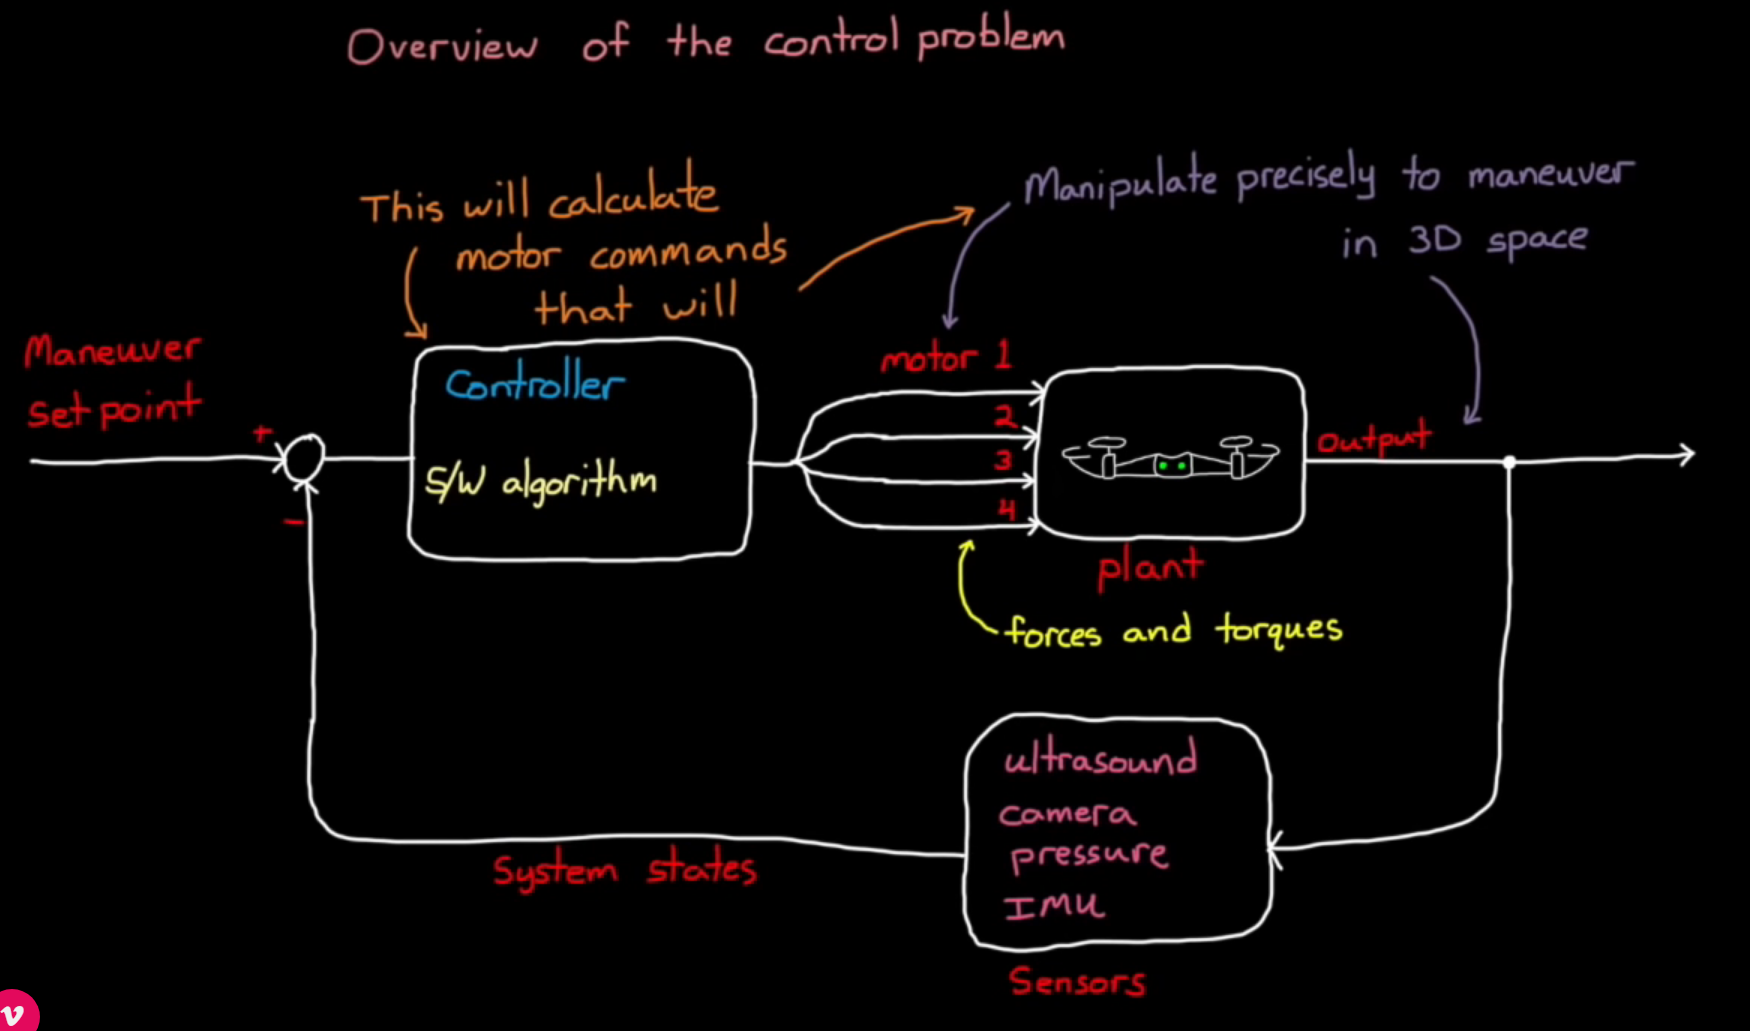 Overview of the control problem
This will calculate
motor commands
that will
Manipulate precisely to maneuver
in 3D space
Maneuver
set point
+
-
Controller
S/W algorithm
motor 1
2
3
4
output
plant
forces and torques
ultrasound
camera
pressure
IMU
Sensors
System states
v